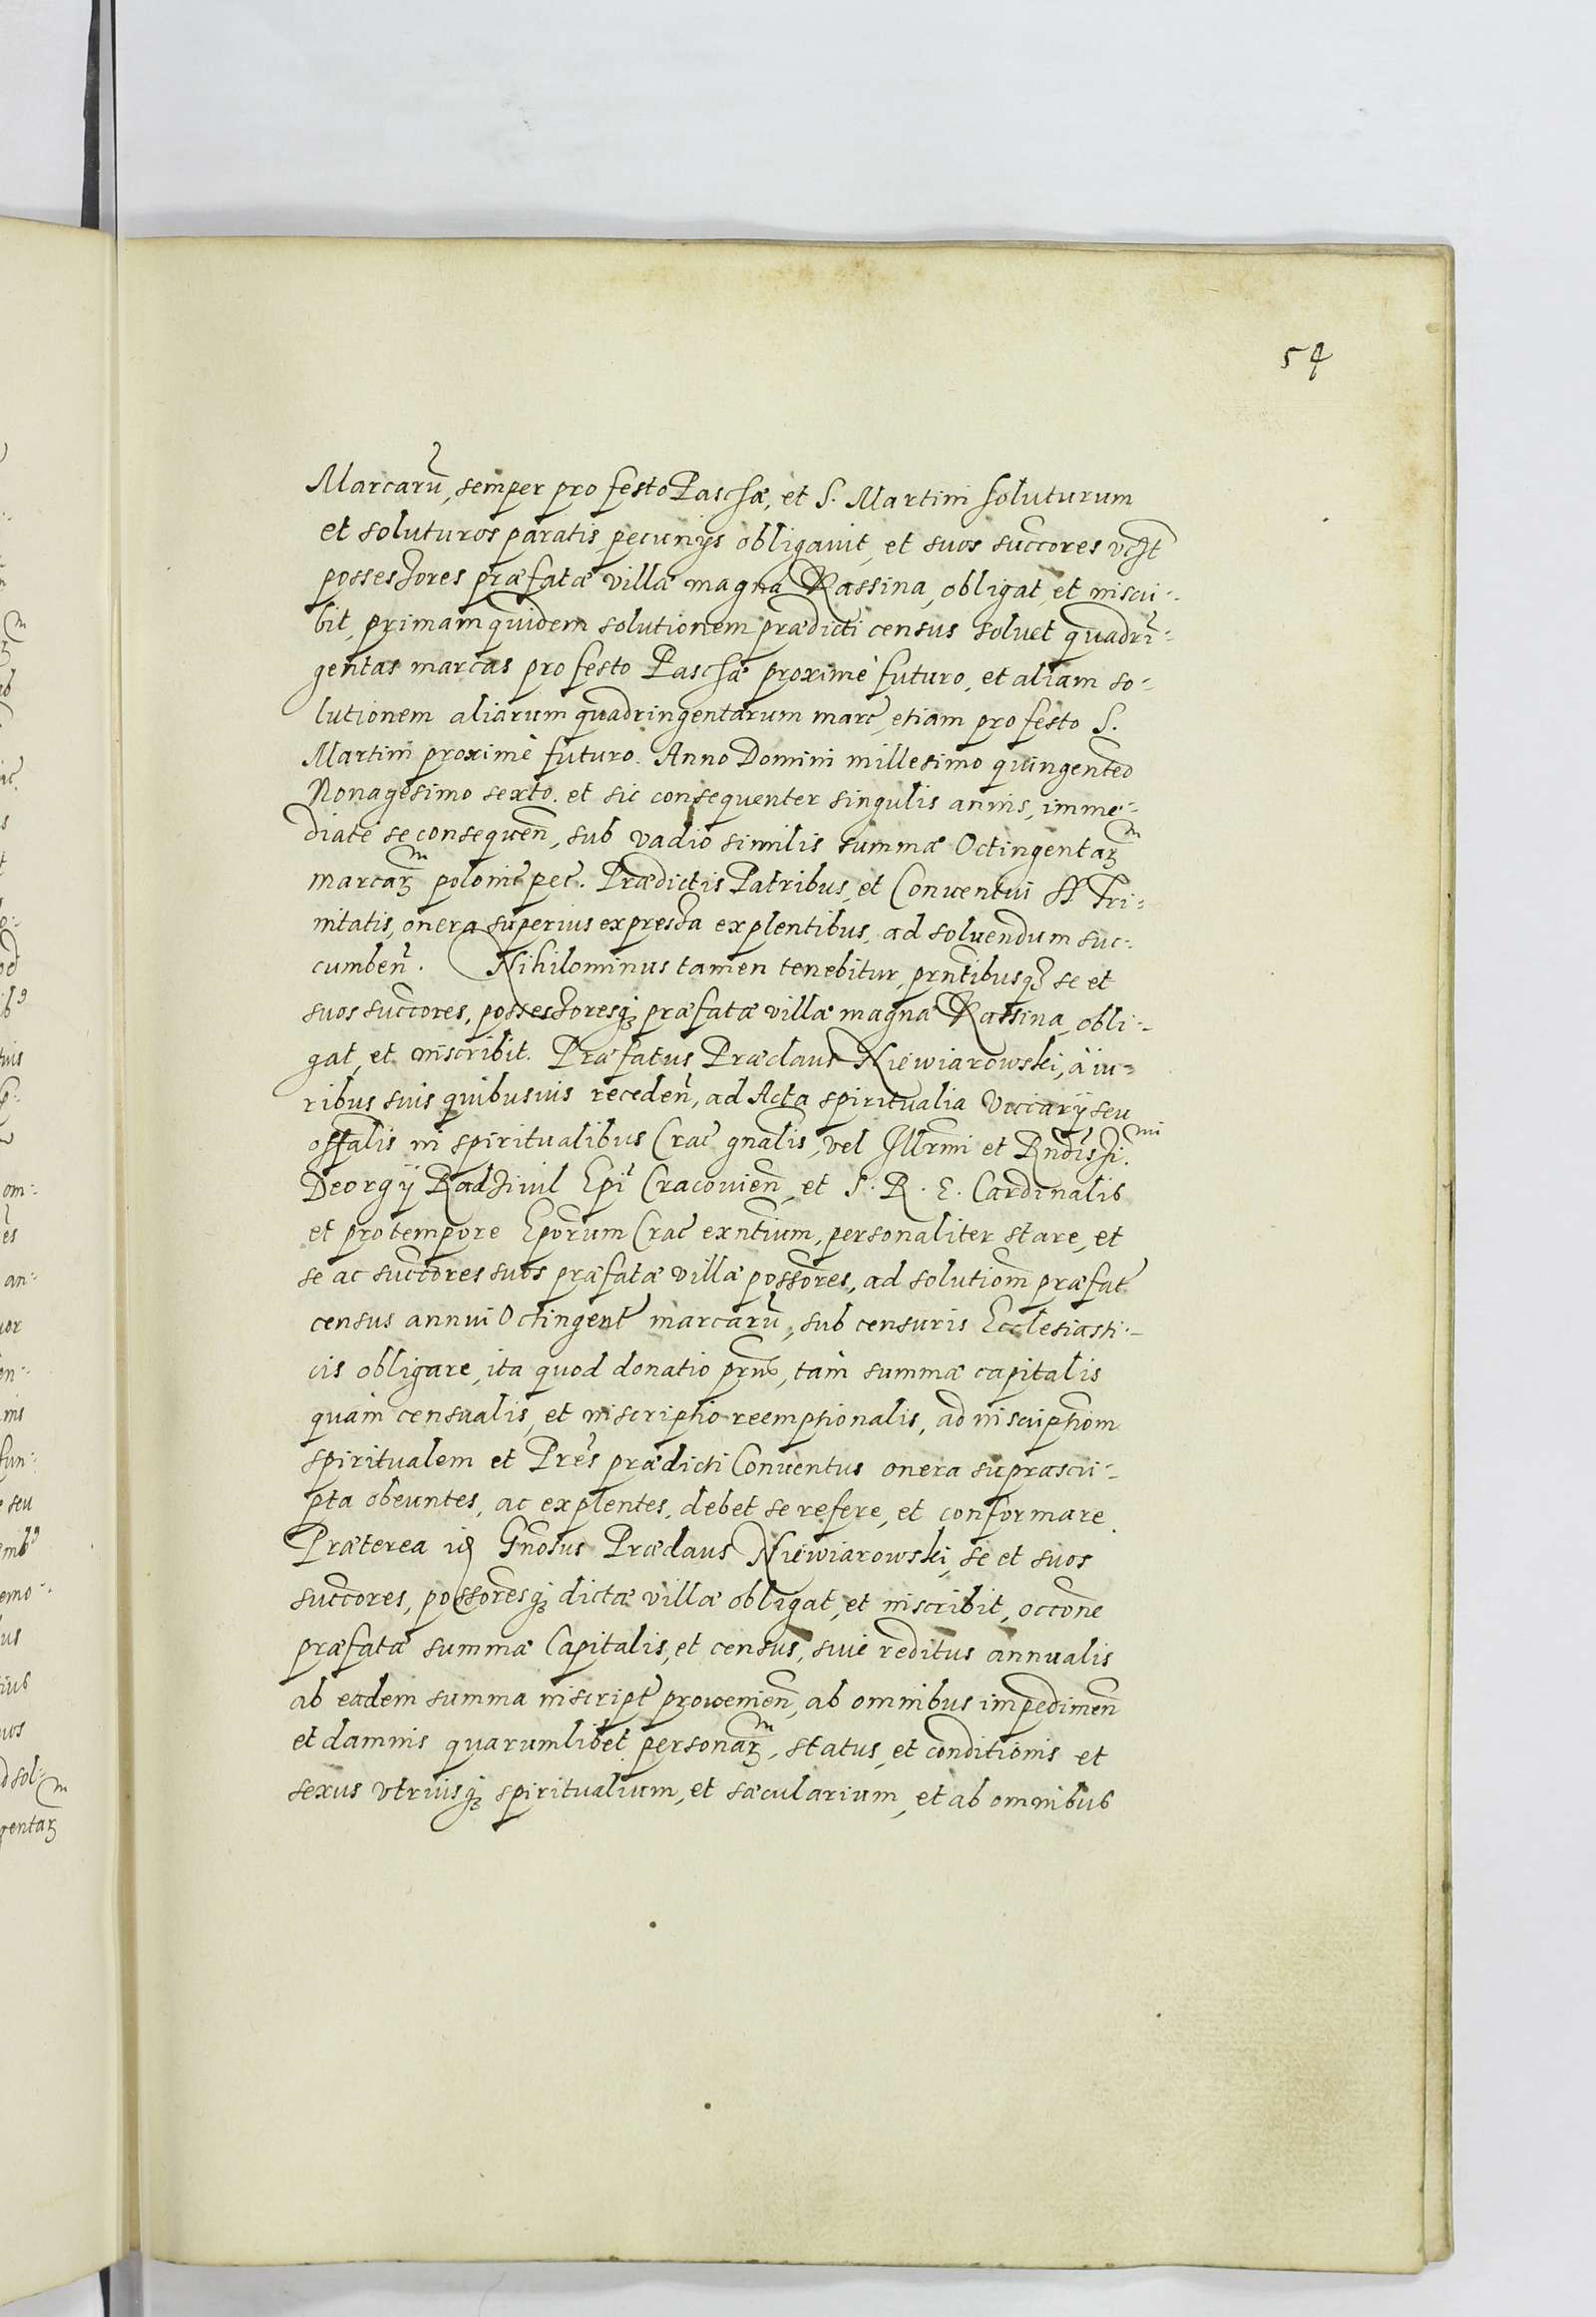 54
Marcarũ, semper pro festo Paschæ, et S. Martini soluturum
et soluturos paratis pecunijs obligauit, et suos succores
possessores præfatæ villæ magna Rassina, obligat, et inscri-
bit, primam quidem solutionem prædicti census soluet quadrĩ-
gentas marcas pro festo Paschæ proximè futuro, et aliam so-
lutionem aliarum quadringentarum marc̃, etiam pro festo S.
Martini proximè futuro. Anno Domini millesimo quingenteo
Nonagesimo sexto. et sic consequenter singulis annis, imme-
diatè se consequeñ, sub vadio similis summæ Octingentaꝝm
marcaꝝm polonic̃ pec̃. Prædictis Patribus, et Conuentui SS Tri-
nitatis, onera superius expressa explentibus, ad soluendum suc-
cumbeñ. Nihilominus tamen tenebitur, prñtibusqꝫ se et
suos succores, possessoresqꝫ præfatæ villæ magna Rassina, obli-
gat, et inscribit. Præfatus Præclaus Niewiarowski, à iu-
ribus suis quibusuis recedeñ, ad Acta spiritualia Vicarij seu
offalis in spiritualibus Crac̃ gnalis, vel Illrmi et Rndissi.mi
Georgij Radziuil Epĩ Cracouieñ, et S. R. E. Cardinalis
et pro tempore Eporum Crac̃ exñtium, personaliter stare, et
se ac succores suos præfatæ villæ possores, ad solutiom præfat̃
census annui Octingent̃ marcarũ, sub censuris Ecclesiasti-
cis obligare, ita quod donatio prñs, tam summæ capitalis
quàm censualis, et inscriptio reemptionalis, ad inscriptiom
spiritualem et Prẽs prædicti Conuentus onera suprascri-
pta obeuntes, ac explentes, debet se refere, et conformare.
Præterea Gñosus Præclaus Niewiarowski, se et suos
succores, possoresqꝫ dictæ villæ obligat, et inscribit, occone
præfatæ summæ Capitalis, et census, siue reditus annualis
ab eadem summa inscript̃ prouenieñ, ab omnibus impedimeñ
et damnis quarumlibet personaꝝm, status, et conditionis et
sexus vtriusqꝫ spiritualium, et sæcularium, et ab omnibus